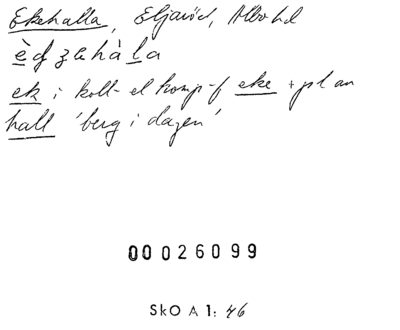 Ekehalla, Eljaröd, Albo hd
èdʒahàla
ek i koll. el komp-f eke + pl av
hall 'berg i dagen'
00026099
SkO A 1: 46